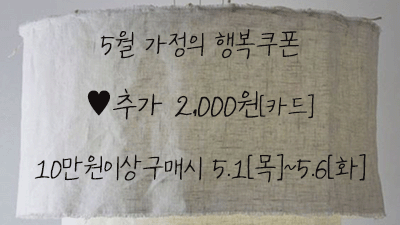 5월 가정의 행복쿠폰
♥추가 2,000원[카드]
10만원이상구매시 5.1[목]~5.6[화]